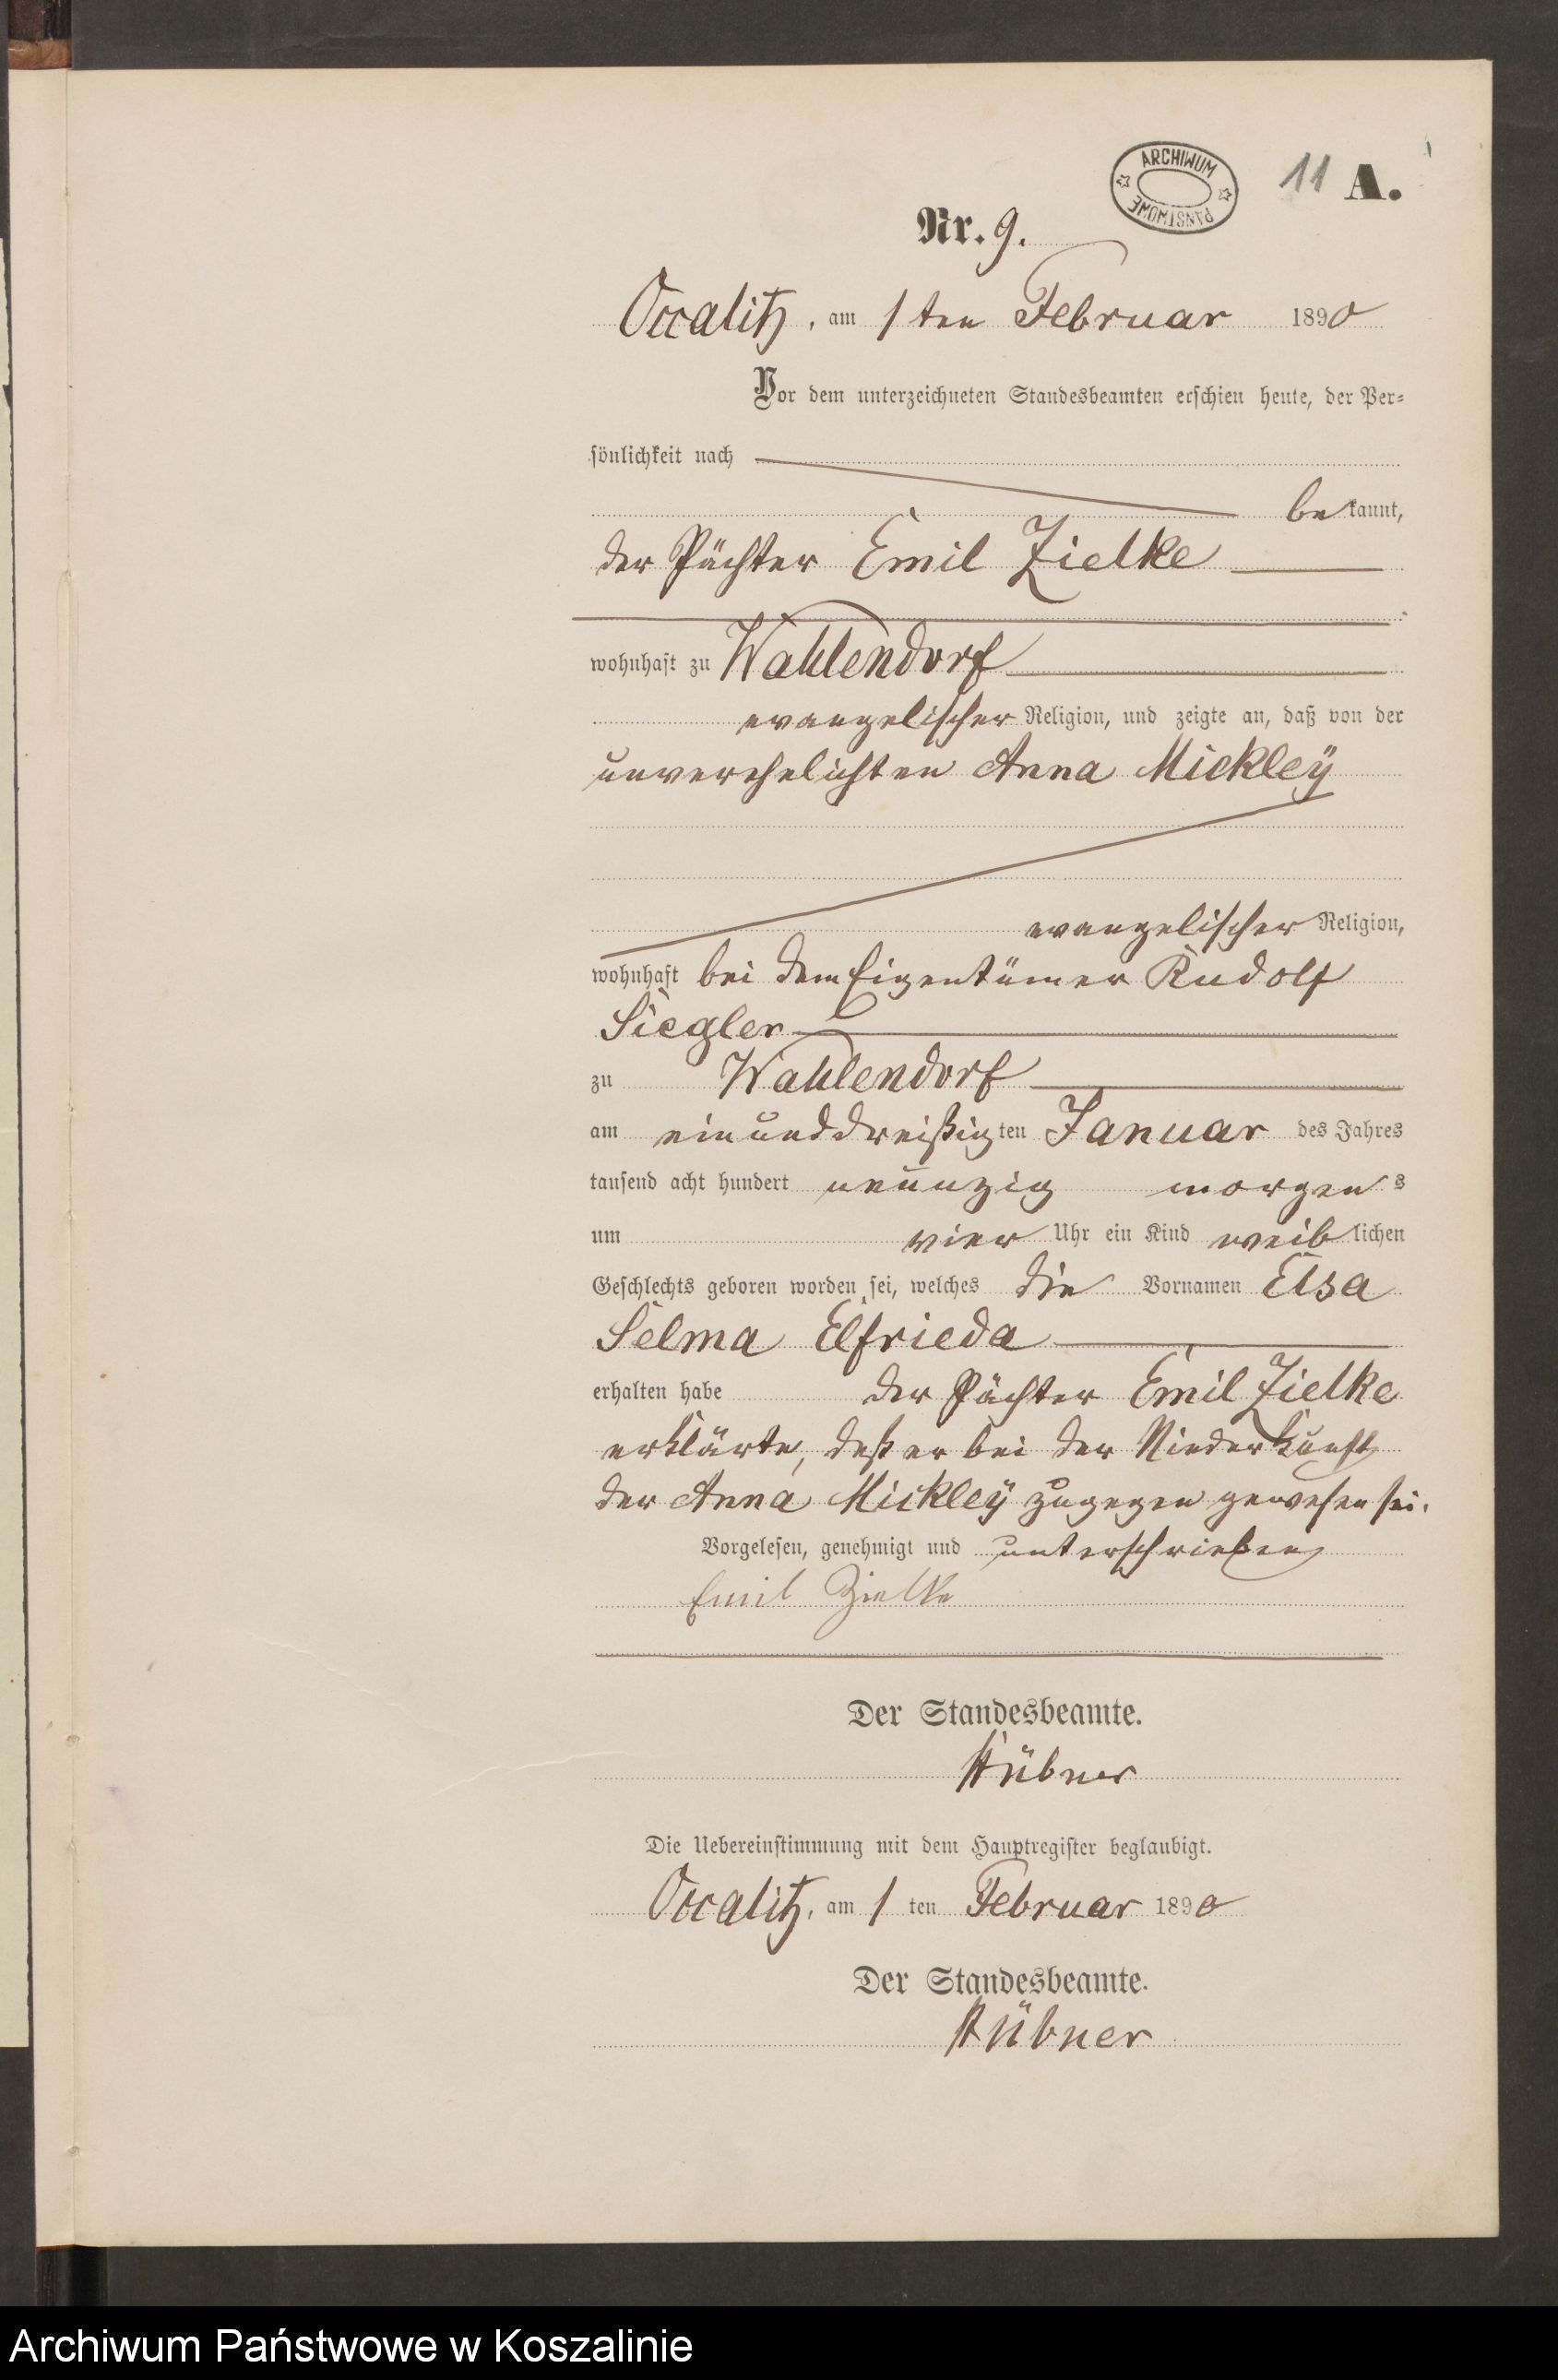 ARCHIWUM PAŃSTWOWE
11 A.
Nr. 9.
Occalitz, am 1ten Februar 1890
Vor dem unterzeichneten Standesbeamten erschien heute, der Per-
sönlichkeit nach
bekannt,
der Pächter Emil Zielke
wohnhaft zu Wahlendorf
evangelischer Religion, und zeigte an, daß von der
unverehelichten Anna Mickleÿ
evangelischer Religion,
wohnhaft bei dem Eigentümer Rudolf
Siegler
zu Wahlendorf
am einunddreißigten Januar des Jahres
tausend acht hundert neunzig morgens
um vier Uhr ein Kind weiblichen
Geschlechts geboren worden sei, welches die Vornamen Elsa
Selma Elfrieda
erhalten habe der Pächter Emil Zielke
erklärte, daß er bei der Niederkunft
der Anna Mickleÿ zugegen gewesen sei.
Vorgelesen, genehmigt und unterschrieben
Emil Zielke
Der Standesbeamte.
Hübner
Die Uebereinstimmung mit dem Hauptregister beglaubigt.
Occalitz, am 1 ten Februar 1890
Der Standesbeamte.
Hübner
Archiwum Państwowe w Koszalinie